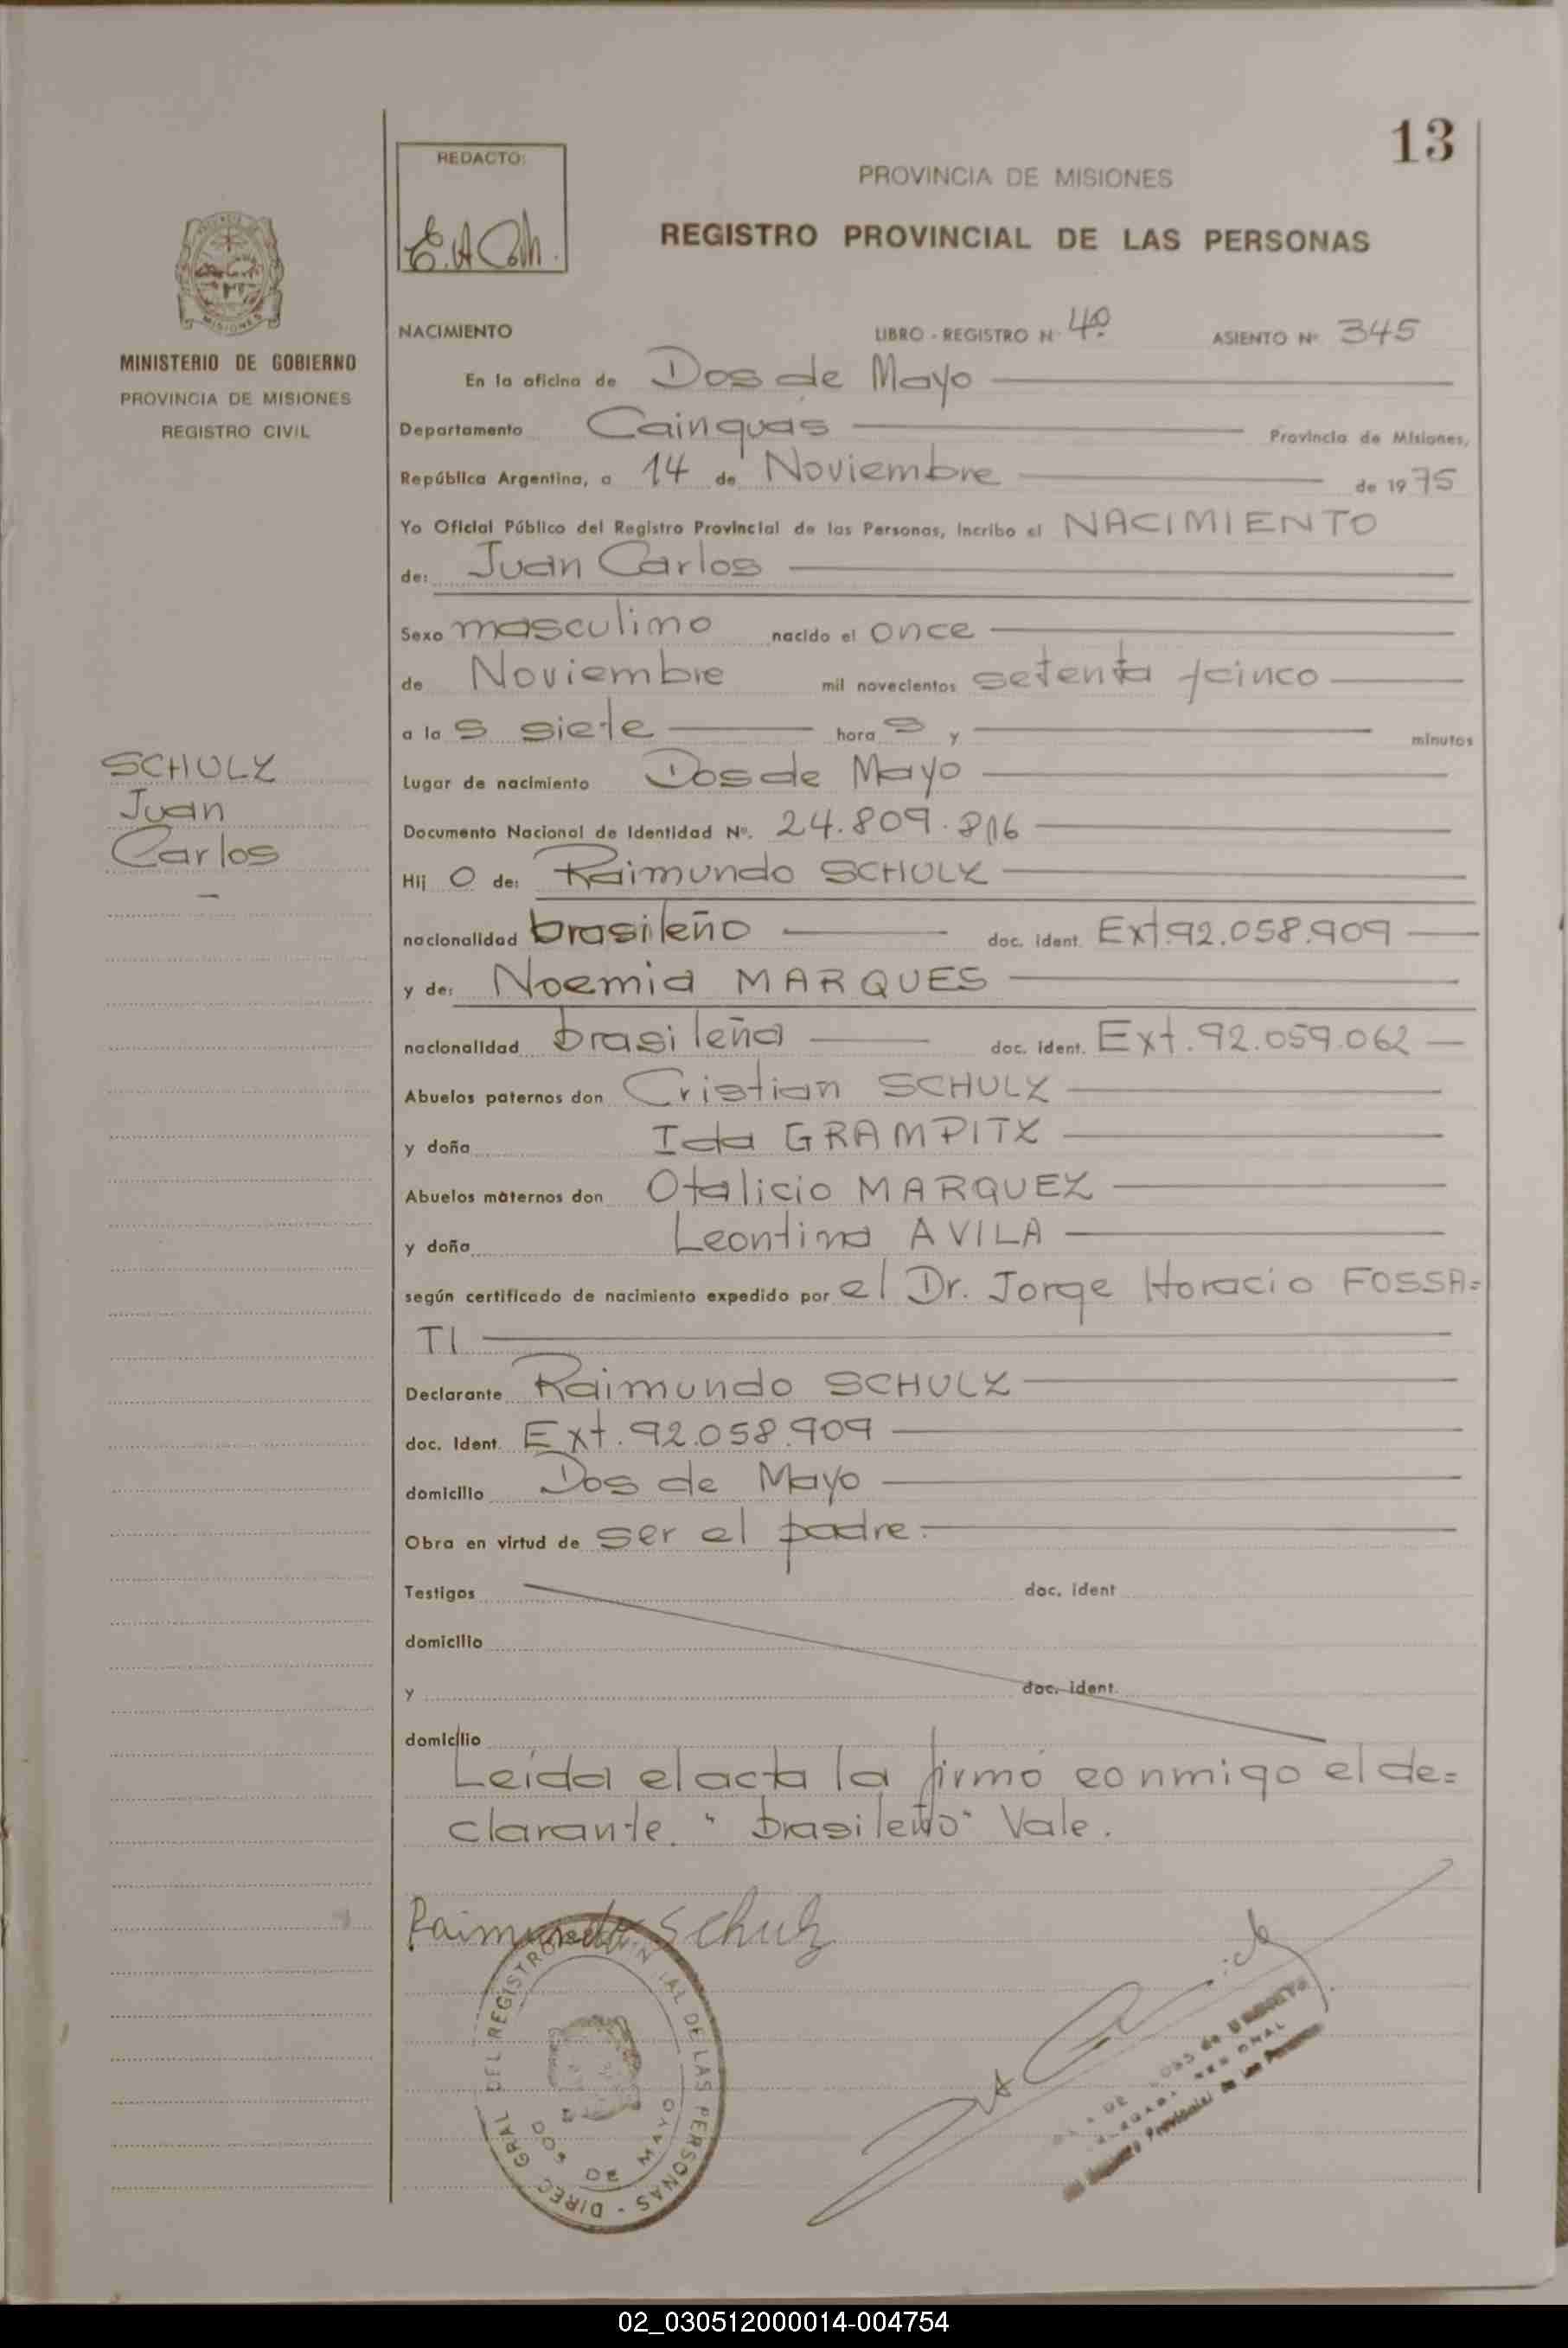 13
REDACTO:
PROVINCIA DE MISIONES
REGISTRO PROVINCIAL DE LAS PERSONAS
MISIONES
MINISTERIO DE GOBIERNO
PROVINCIA DE MISIONES
REGISTRO CIVIL
NACIMIENTO LIBRO - REGISTRO Nº 4º ASIENTO Nº 345
En la oficina de Dos de Mayo
Departamento Cainguás Provincia de Misiones,
República Argentina, a 14 de Noviembre de 1975
Yo Oficial Público del Registro Provincial de las Personas, incribo el NACIMIENTO
de: Juan Carlos
Sexo masculino nacido el once
de Noviembre mil novecientos setenta y cinco
a las siete horas y minutos
SCHULZ
Juan
Carlos
Lugar de nacimiento Dos de Mayo
Documento Nacional de Identidad Nº. 24.809.816
Hijo de: Raimundo SCHULZ
nacionalidad brasileño doc. ident. Ext.92.058.909
y de: Noemia MARQUES
nacionalidad brasileña doc. ident. Ext.92.059.062
Abuelos paternos don Cristian SCHULZ
y doña Ida GRAMPITZ
Abuelos maternos don Otalicio MARQUEZ
y doña Leontina AVILA
según certificado de nacimiento expedido por el Dr. Jorge Horacio FOSSA=
TI
Declarante Raimundo SCHULZ
doc. ident. Ext.92.058.909
domicilio Dos de Mayo
Obra en virtud de ser el padre.
Testigos doc. ident
domicilio
y doc. ident.
domicilio
Leída el acta la firmó conmigo el de=
clarante. "brasileño" Vale.
Raimundo Schulz
DIREC GRAL DEL REGISTRO PROVINCIAL DE LAS PERSONAS -
DOS DE MAYO
Provincial de las Personas
02_030512000014-004754